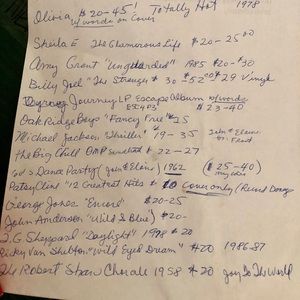 Olivia $20-45! Totally Hot 1978
w/words on Cover
Sheila E The Glamorous Life $20-25⁰⁰
Amy Grant "Unguarded" 1985 $20-$30
Billy Joel "The Stranger $30-52⁰⁰ $29 Vinyl
Journey LP Escape Album w/words
ESC4P3 $23-40
Oak Ridge Boys "Fancy Free" $25
Michael Jackson "Thriller" 19-35 John & Elaine
on Front
The Big Chill OMP Sundtrack $22-27
Dance Party (John & Elaine) 1962 ($25-40)
my copy
Patsy Cline "12 Greatest Hits $10 Cover only (Record Damage
George Jones "Encore" $20-25
John Anderson "Wild & Blue) $20-
T.G. Sheppard "Daylight" 1978 $20
Ricky Van Shelton "Wild Eyed Dream" $20 1986-87
The Robert Shaw Chorale 1958 $20 Joy To The World